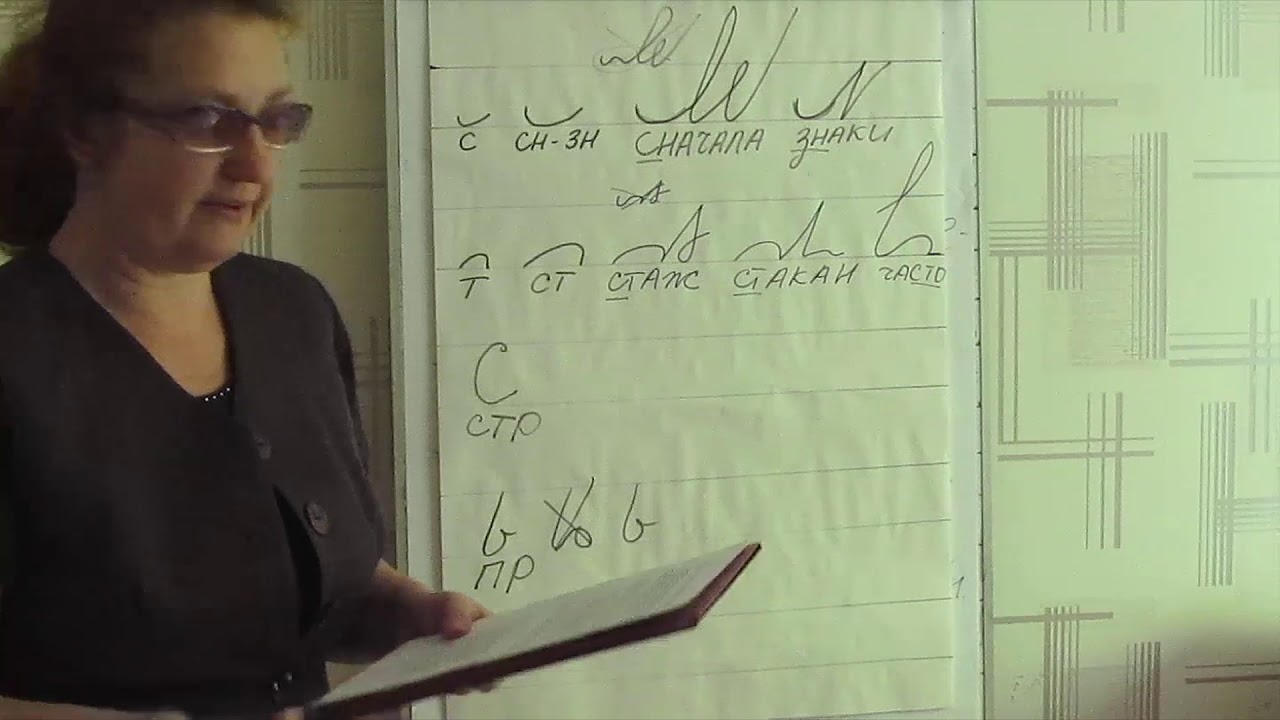 С СН-ЗН СНАЧАЛА ЗНАКИ
Т СТ СТАЖ СТАКАН ЧАСТО
СТР
ПР